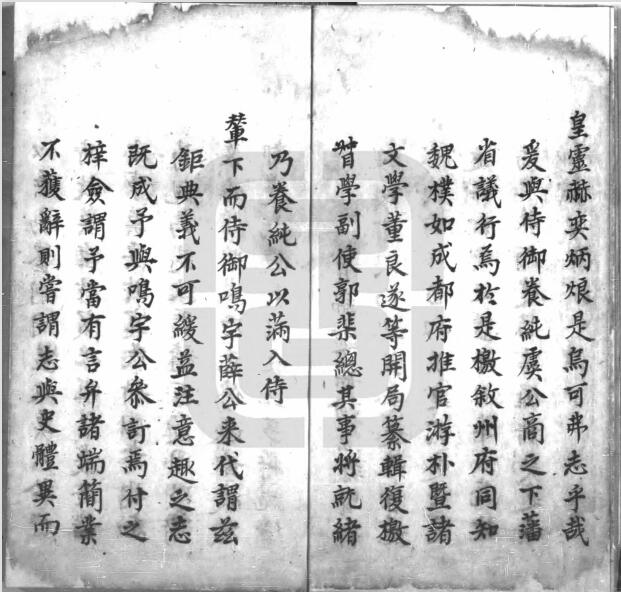 皇靈赫奕炳烺是烏可弗志乎哉
爰與侍御養純虞公咼之下藩
省議行焉於是檄敘州府同知
魏樸如成都府推官游朴暨諸
文學董良遂等開局纂輯復檄
督學副使郭棐總其事將就緒
乃養純公以滿入侍
輦下而侍御鳴宇薛公来代謂茲
鉅典義不可緩益注意趣之志
既成予與鳴宇公叅訂焉付之
梓僉謂予當有言弁諸端簡業
不獲辭則嘗謂志與史體異而